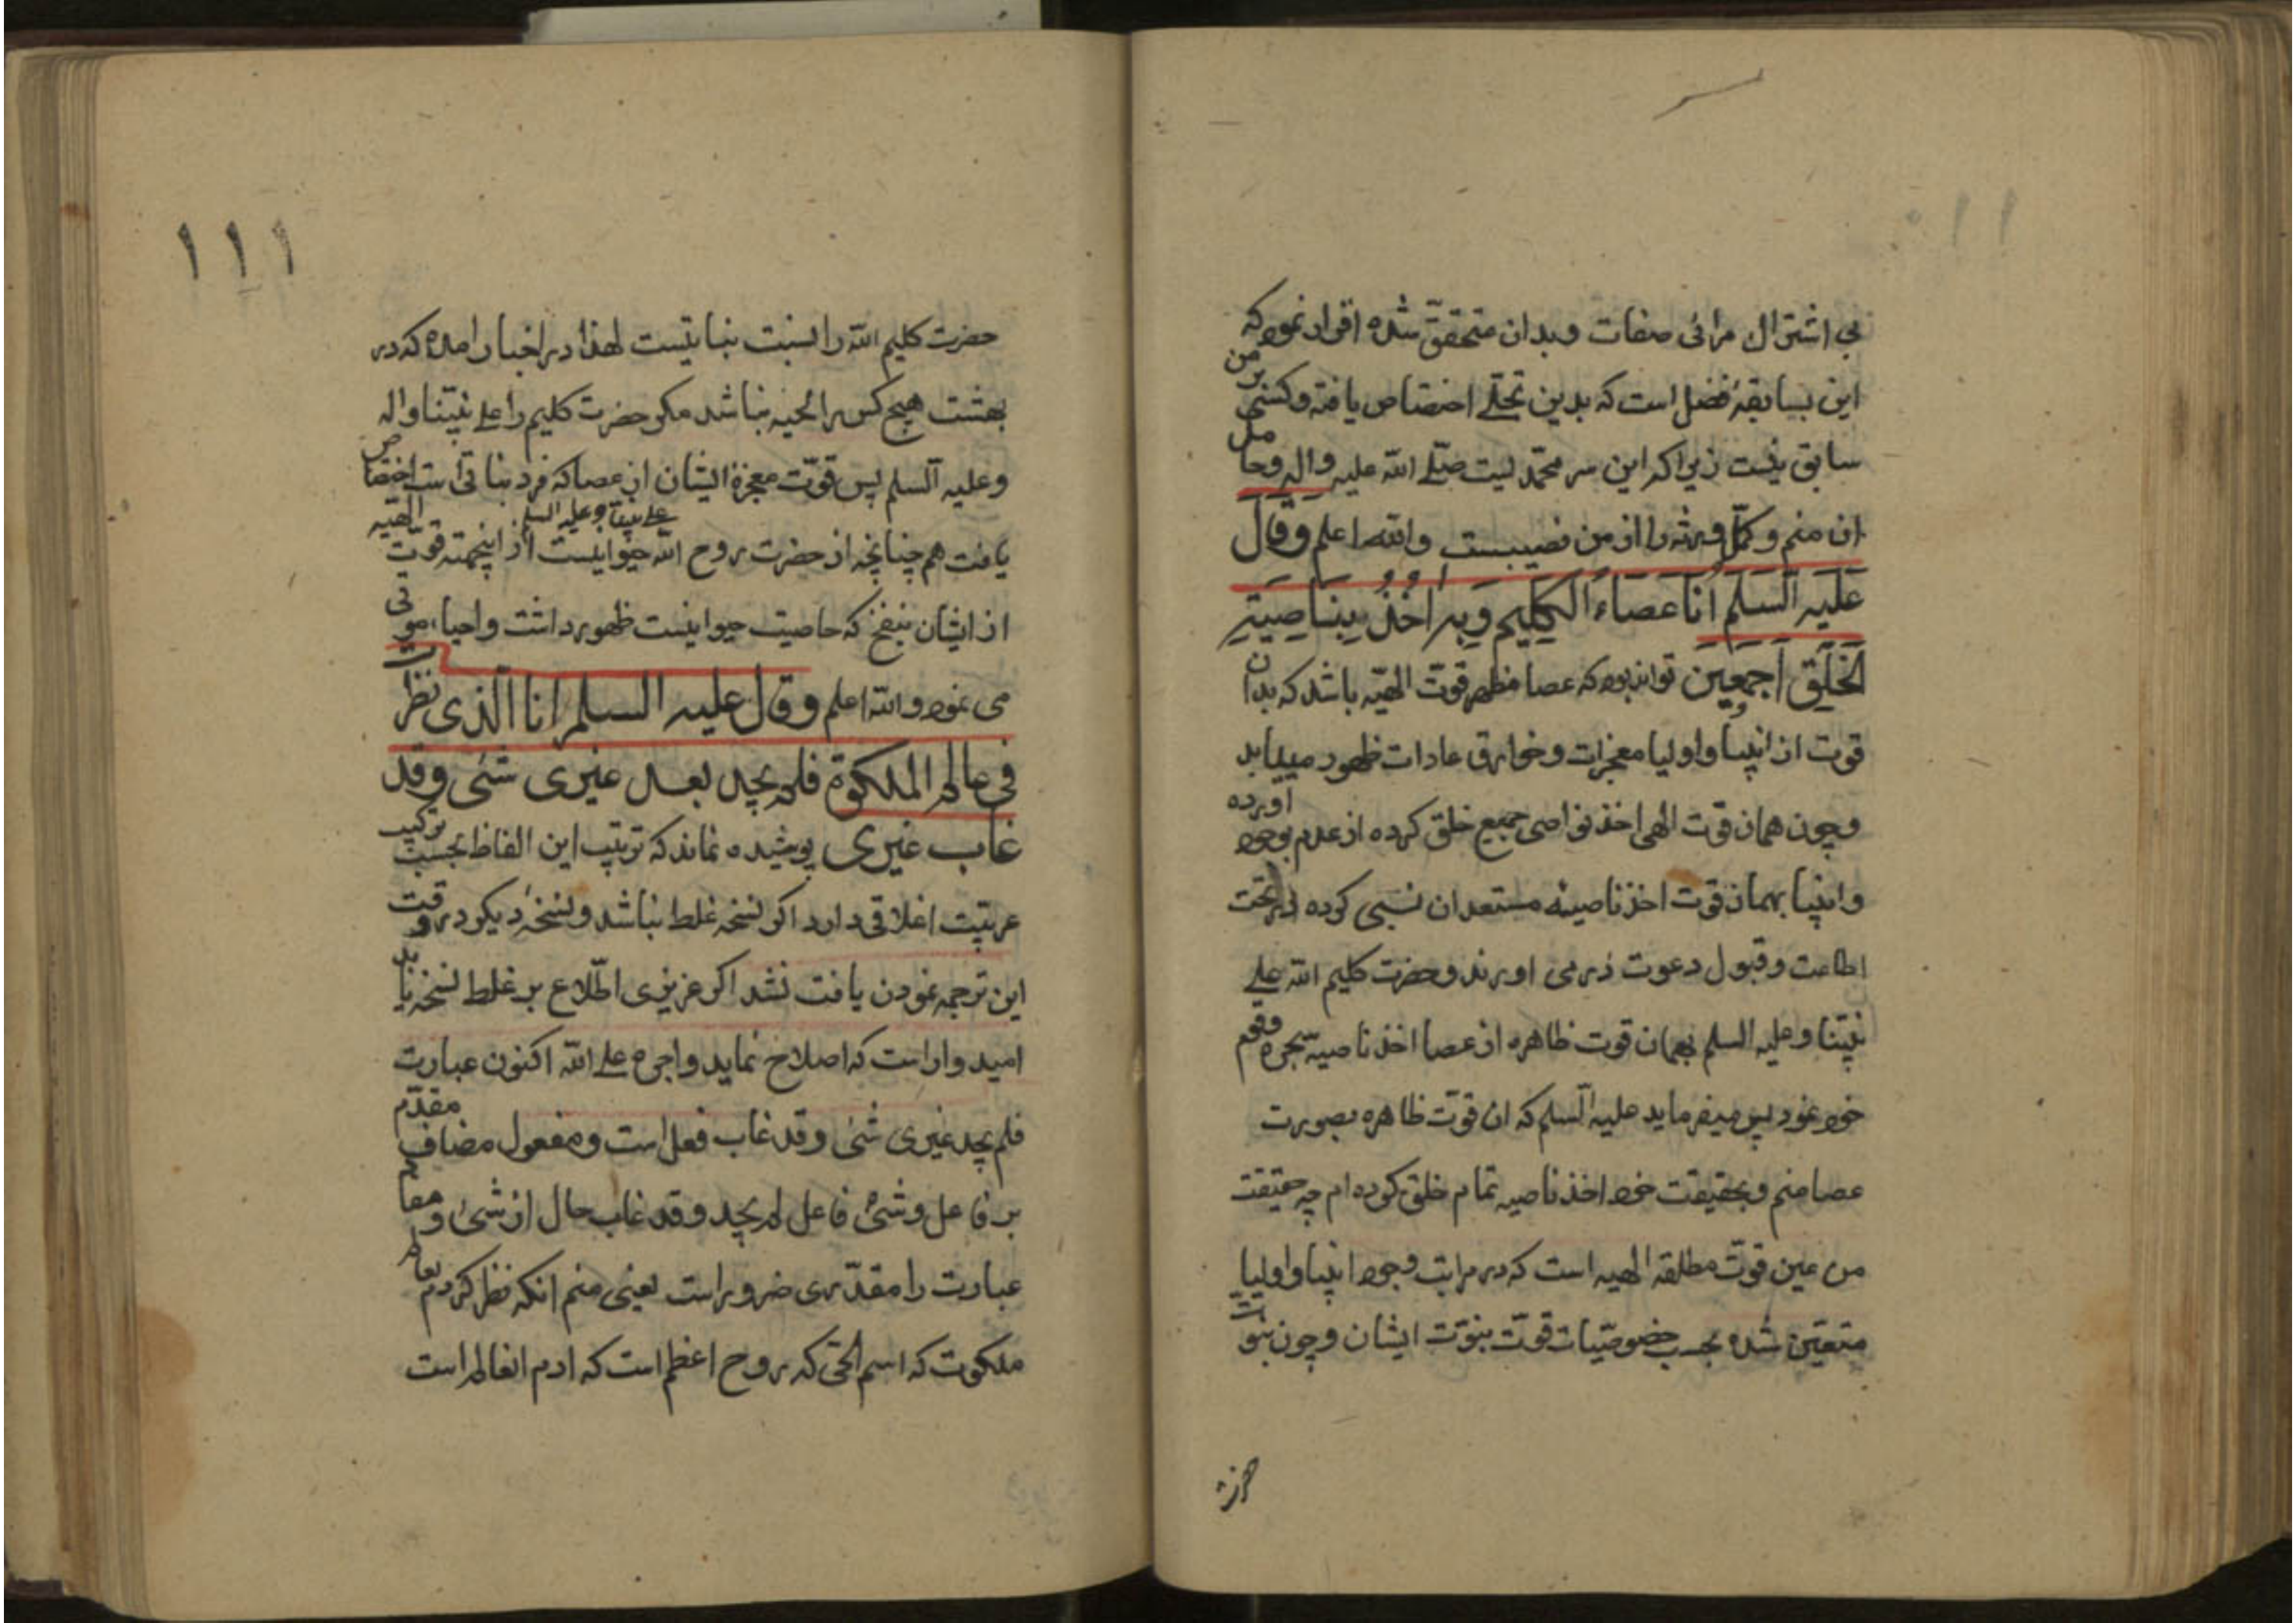 بی اشتراک مرائی صفات وبدان متحقّق شده اقرار نموده که
این بسابقهٔ فضل است که بدین تجلّے اختصاص یافته وکسی بر من
سابق نیست زیراکه این سر محمّدیست صلّے الله علیه واله وحامل
ان منم وکمّل ورثه را از من نصیبیست والله اعلم وَقَالَ
عَلَیهِ السَّلم اَنَا عَصَاءُ الکَلِیمِ وَبِهِ اخُذُ بِنَاصِیَةِ
الخَلقِ اَجمَعِین تواند بود که عصا مظهر قوت الهیّه باشد که بدان
قوت از انبیا و اولیا معجزات وخوارق عادات ظهور مییابد
وچون همان قوت الهی اخذ نواصی جمیع خلق کرده از عدم بوجود آورده
وانبیا بهمان قوت اخذ ناصیهٔ مستعدان نسبی کرده در تحت
اطاعت وقبول دعوت درمی اورند وحضرت کلیم الله علے
نبیّنا وعلیه السلم بهمان قوت ظاهره از عصا اخذ ناصیهٔ سحره وقوم
خود نمود پس میفرماید علیه السّلم که ان قوّت ظاهره بصورت
عصا منم وبحقیقت خود اخذ ناصیه تمام خلق کرده ام چه حقیقت
من عین قوّت مطلقه الهیه است که در مراتب وجود انبیا واولیا
متعیّن شده بحسب خصوصیّات قوّت نبوّت ایشان وچون نبوّت
حضرت
۱۱۱
حضرت کلیم الله را نسبت نباتیست لهذا در اخبار امده که در
بهشت هیچ کس را لحیه نباشد مکر حضرت کلیم را علے نبیّنا واله
وعلیه السّلم پس قوّت معجزهٔ ایشان از عصا که فرد نباتی است اختصاص
یافت هم چنانچه از حضرت روح الله علے نبینا وعلیه السلم حیوانیست از اینجهته قوّت الهیّه
از ایشان بنفخ که خاصیت حیوانیست ظهور داشت واحیاء موتی
می نمود والله اعلم وقال علیه السلم انا الّذی نظرت
فی عالم الملکوة فلم یجد بعد غیری شئی وقد
غاب غیری پوشیده نماند که ترتیب این الفاظ بحسب ترکیب
عربیّت اغلاقی دارد اکر نسخه غلط نباشد ونسخهٔ دیکر در وقت
این ترجمه نمودن یافت نشد اکر عزیزی اطّلاع بر غلط نسخه یابد
امیدوار است که اصلاح نماید واجره علے الله اکنون عبارت
فلم یجد غیری شئ وقد غاب فعل است ومفعول مضاف مقدّم
بر فاعل وشئ فاعل لم یجد وقد غاب حال از شئ و
عبارت را مقدّری ضرور است یعنی منم انکه نظر کردم بعالم
ملکوت که اسم الحیّ که روح اعظم است که ادم انعالم است